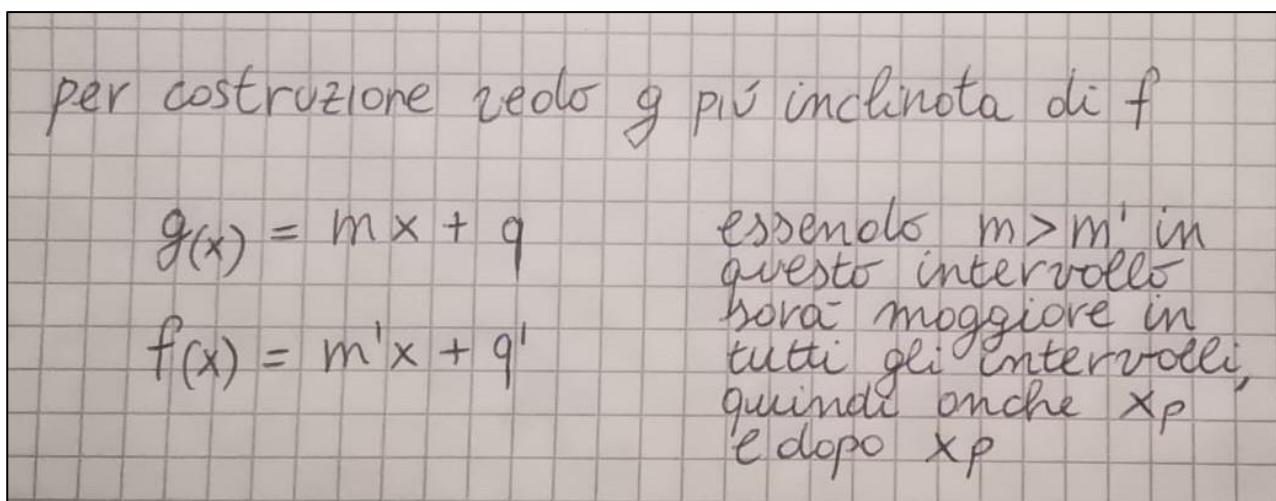 per costruzione vedo g più inclinata di f
g(x) = mx + q
f(x) = m'x + q'
essendo m > m' in
questo intervallo
sarà maggiore in
tutti gli intervalli,
quindi anche xp
e dopo xp